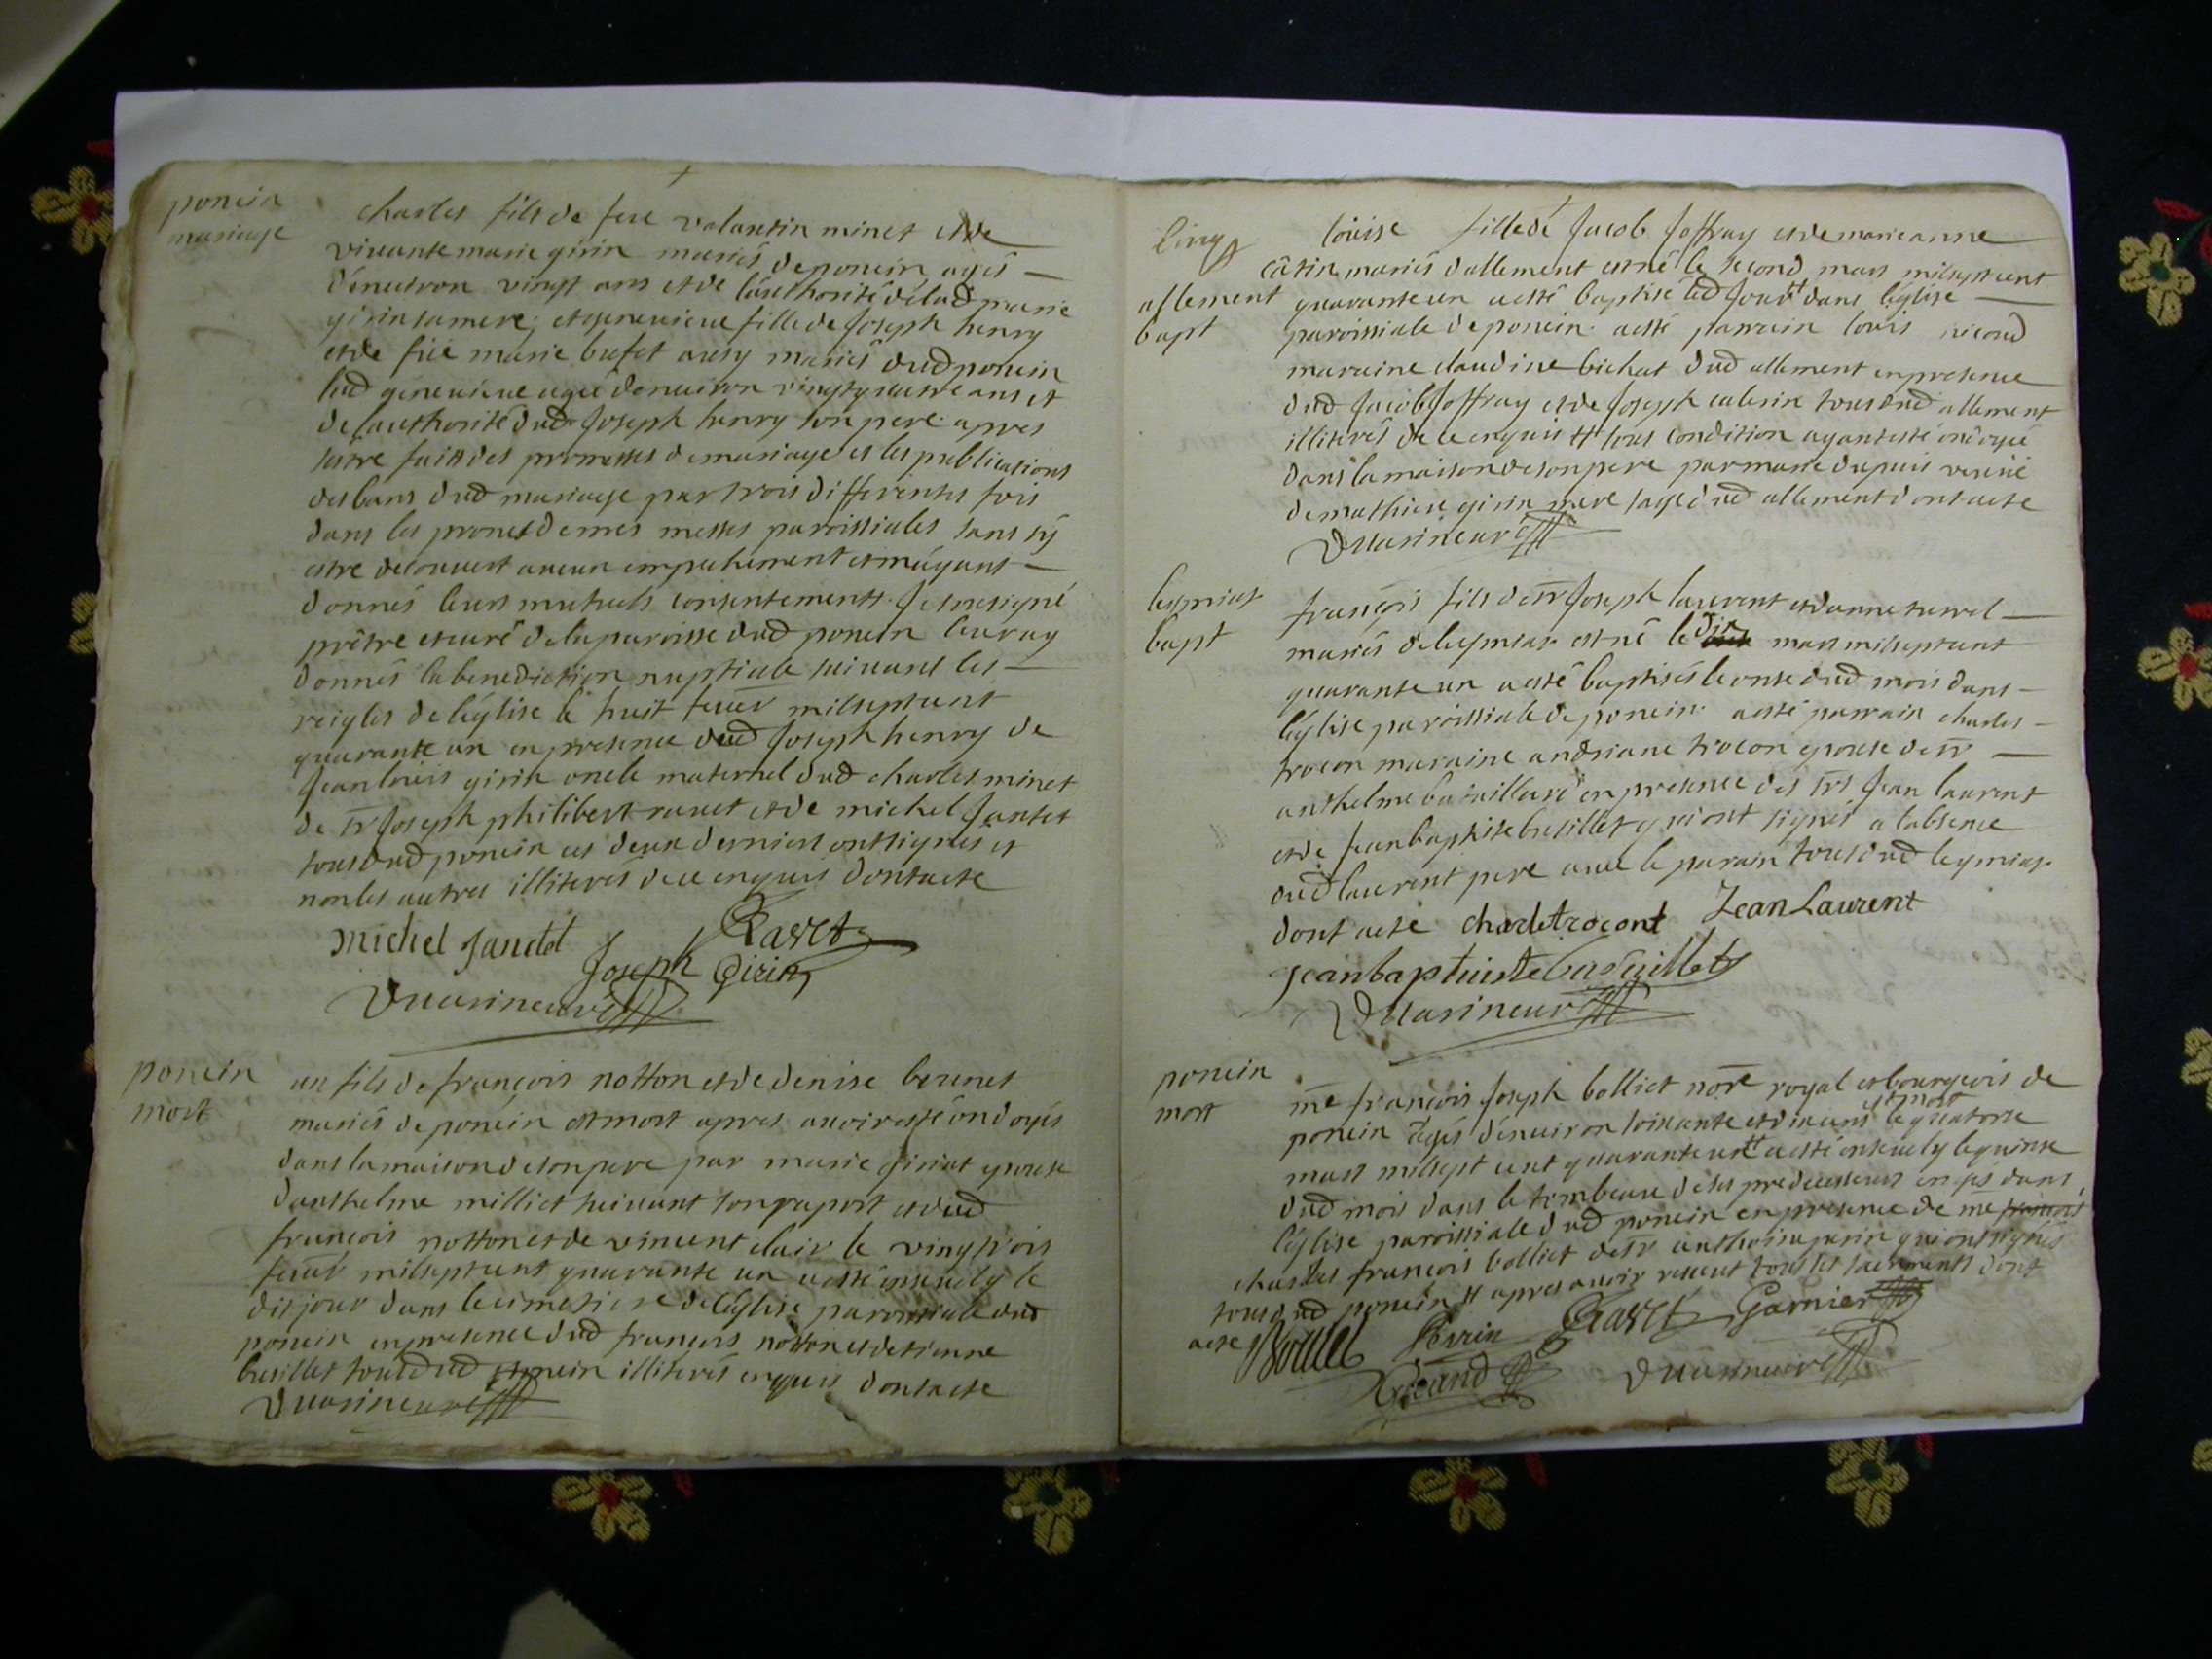 poncin
mariage
charles fils de feu valantin minet et de
vivante marie girin mariés de poncin agés
d'environ vingt ans et de l'authorité de lad marie
girin sa mere, et genevieve fille de Joseph henry
et de füe marie bufet ausy mariés dud poncin
lad genevieve agée d'environ vingtquatre ans et
de l'authorité dud Joseph henry son pere apres
sestre faitt des promesses de mariage et les publications
des bans dud mariage par trois differentes fois
dans les prones de mes messes paroissiales sans sÿ
estre decouvert aucun empechement et m'ayant
donnés leurs mutuels consentements Je soussigné
prêtre et curé de la paroisse dud poncin leur ay
donnés la benediction nuptiale suivant les
reigles de l'église le huit fevér milseptcent
quarante un en presence dud Joseph henry de
Jean louis girin oncle maternel dud charles minet
de sr Joseph philibert ravet et de michel Jantet
tous dud poncin ces deux derniers ont signés et
non les autres illiterés de ce enquis dont acte
Michel Jandet Ravet
Joseph Girin
poncin
mort
un fils de françois notton et de denise brunet
mariés de poncin est mort apres avoir esté ondoyés
dans la maison de son pere par marie giriat epouse
danthelme milliet suivant son raport et dud
françois notton et de vincent clair le vingtrois
fevér milseptcent quarante un a esté ensevely le
dit jour dans le cimetiere de l'église paroissiale dud
poncin en presence dud françois notton et detienne
busillet tous dud poncin illiterés enquis dont acte
allement
bapt
loüise fille de Jacob Joffray et de marie anne
mariés d'allement est né le second mars milseptcent
quarante un a esté baptisé led jour tt dans l'église
paroissiale de poncin a esté parrain louis nicoud
maraine claudine bichat dud allement en presence
dud Jacob Joffray et de Joseph tous dud allement
illiterés de ce enquis tt sous condition ayant esté ondoyée
dans la maison de son pere par marie dupuis veuve
de mathieu girin mere sage dud allement dont acte
leymiat
bapt
françois fils de sr Joseph laurent et danne
mariés de leymiat est né le dix mars milseptcent
quarante un a esté baptisés le onse dud mois dans
l'église paroissiale de poncin a esté parrain charles
trocon maraine andriane trocon epouse de sr
anthelme bataillard en presence des srs Jean laurent
et de Jean baptiste busillet qui ont signés a l'absence
dud laurent pere avec le parain tous dud leymiat
dont acte charle trocont Jean Laurent
Jean baptuiste busuillet
poncin
mort
me françois Joseph bolliet nore royal et bourgeois de
poncin agés d'environ soixante et dix ans est mort le quatorse
mars milsept cent quarante un tt a esté ensevely le quinse
dud mois dans le tombeau de ses predecesseurs en ps dans
l'église paroissiale dud poncin en presence de me françois
charles françois bolliet de sr anthoine perin qui ont signés
tous dud poncin tt apres avoir receut tous les sacrements dont
acte Bolliet Perrin Ravet Garnier